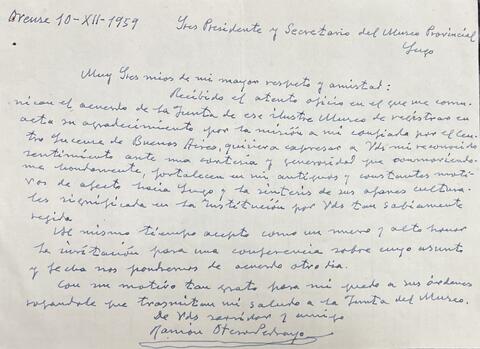 Orense 10-XII-1959
Sres Presidente y Secretario del Museo Provincial
Lugo
Muy Sres mios de mi mayor respeto y amistad:
Recibido el atento oficio en el que me comu-
nican el acuerdo de la Junta de ese ilustre Museo de registrar en
acta su agradecimiento por la misión a mi confiada por el Cen-
tro Lucense de Buenos Aires, quisiera expresar a Vds mi reconocido
sentimiento ante una cortesia y generosidad que conmoviendo-
me hondamente, fortalecen en mi antiguos y constantes moti-
vos de afecto hacia Lugo y la sintesis de sus afanes cultura-
les significada en la Institución por Vds tan sabiamente
regida
Al mismo tiempo acepto como un nuevo y alto honor
la invitación para una conferencia sobre cuyo asunto
y fecha nos pondremos de acuerdo otro dia.
Con un motivo tan grato para mi quedo a sus órdenes
rogandole que trasmitan mi saludo a la Junta del Museo.
De Vds servidor y amigo
Ramón Otero Pedrayo